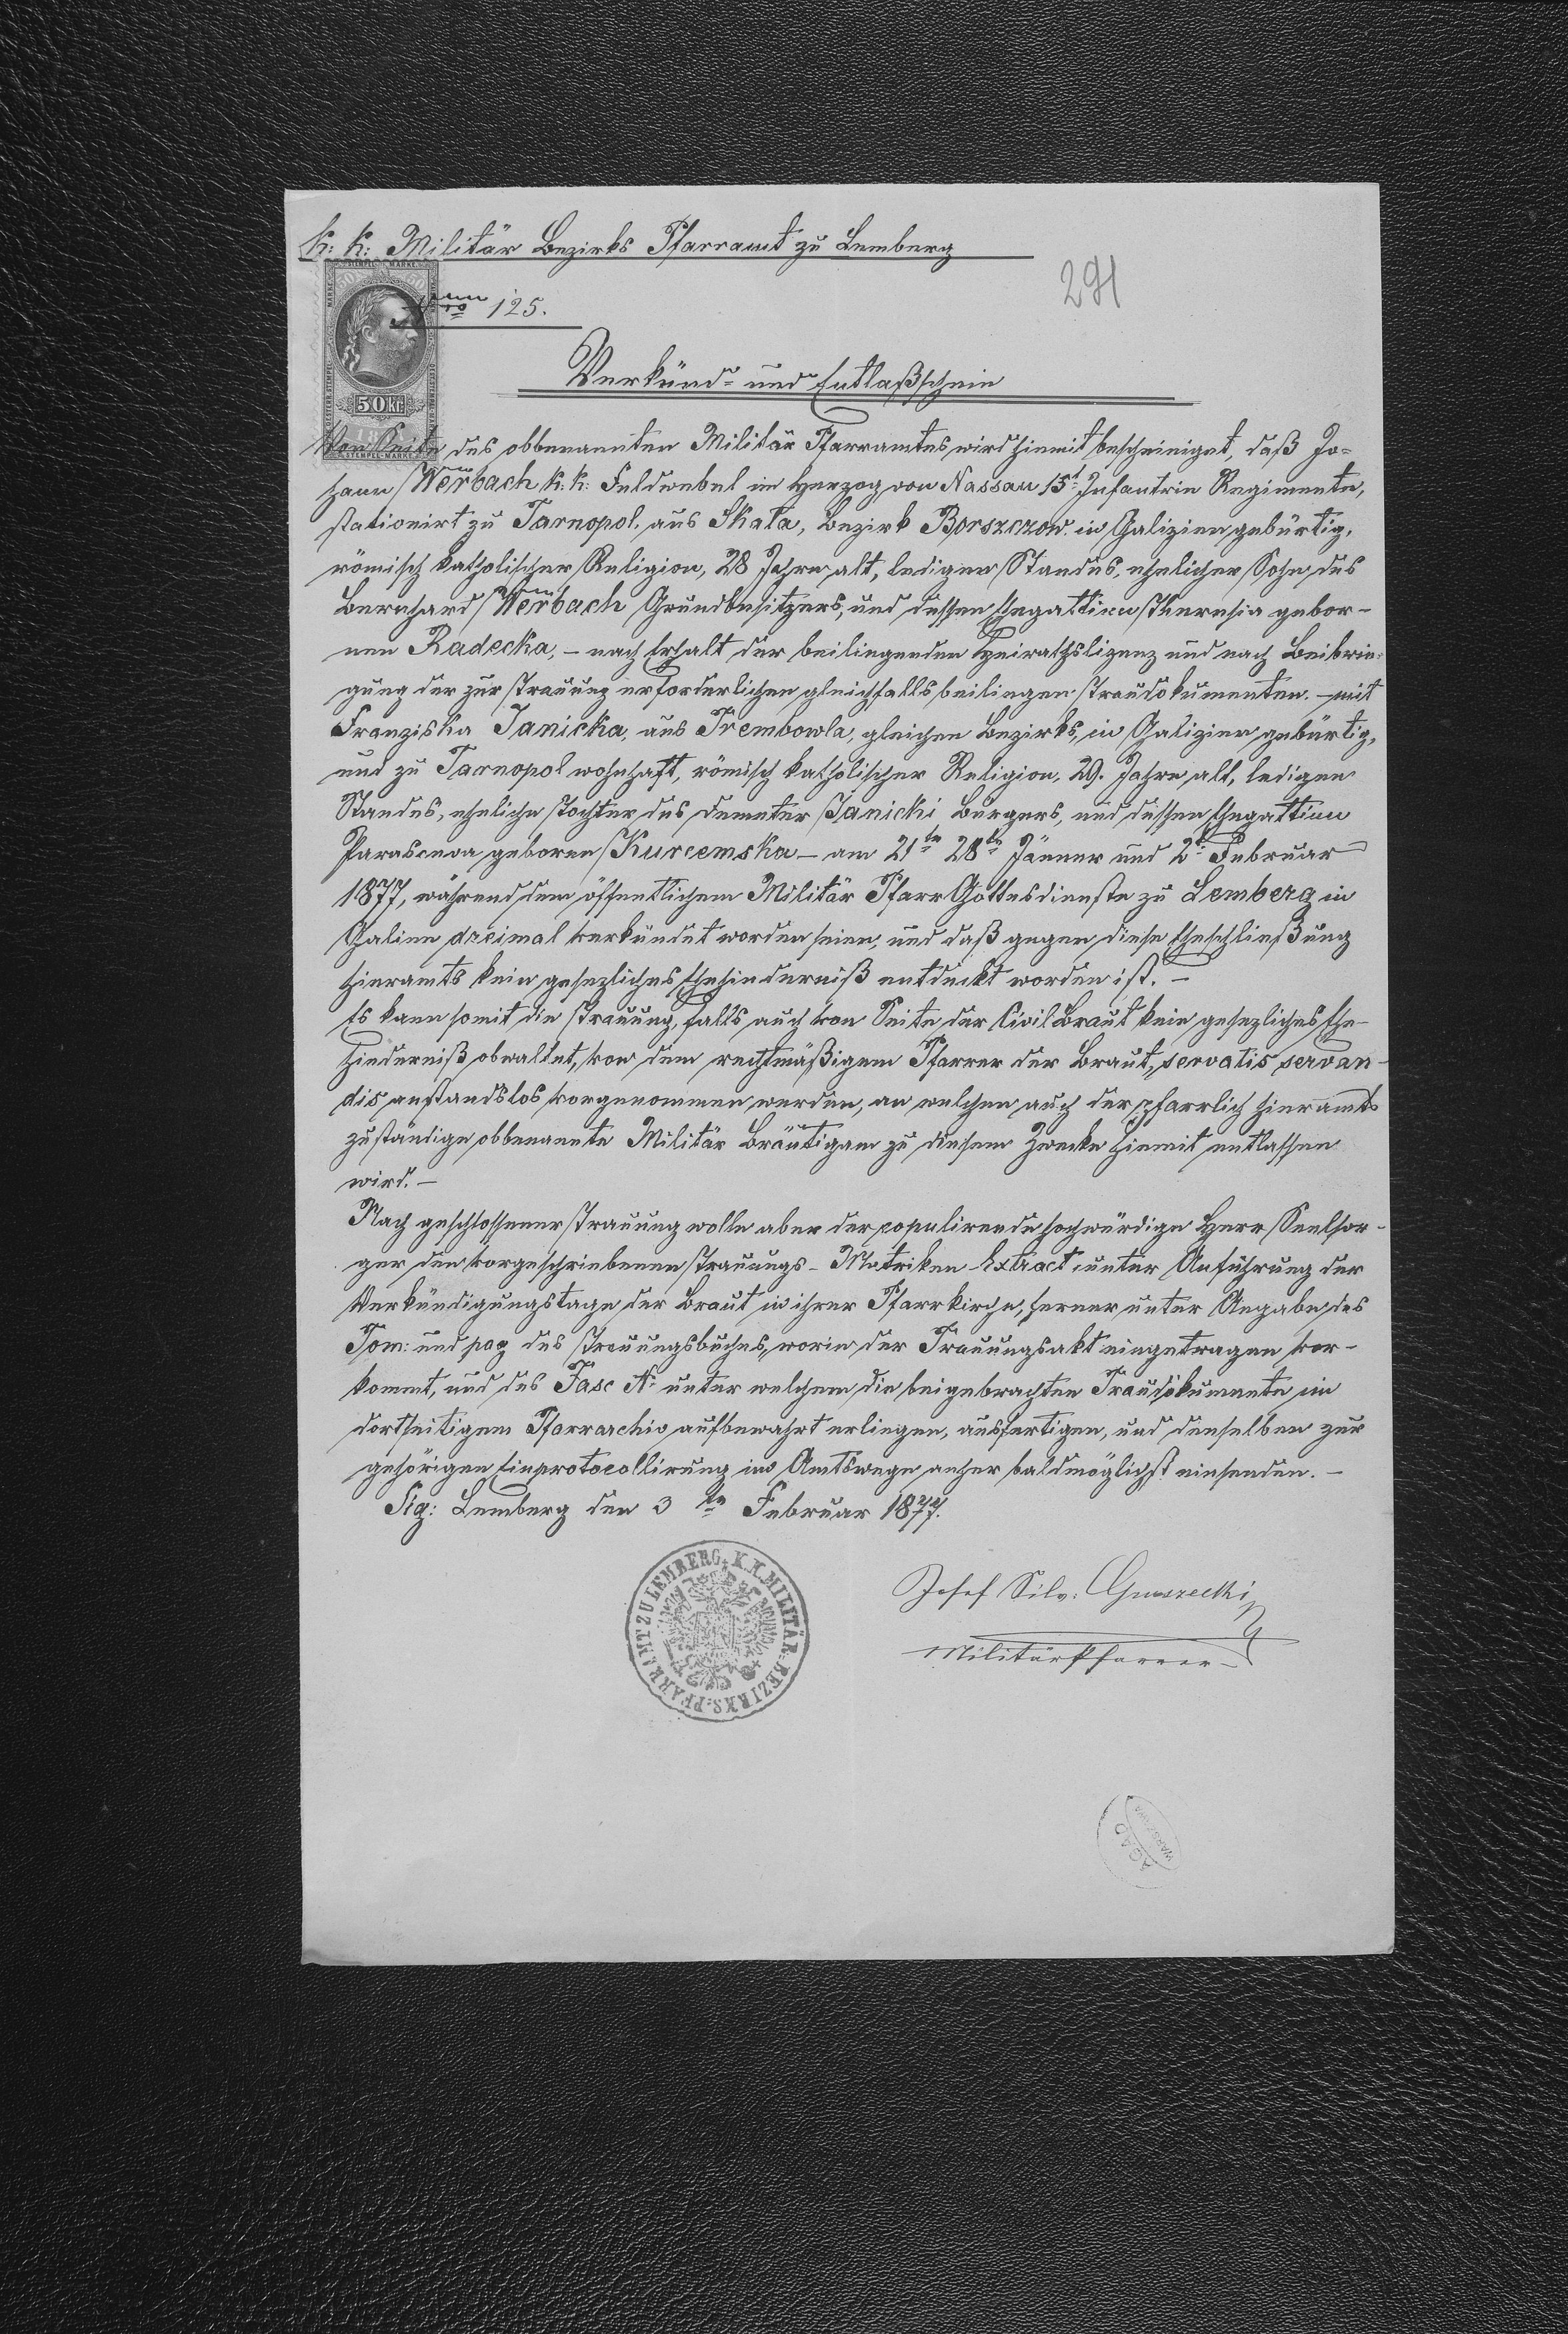 K: K: Militär Bezirks Pfarramt zu Lemberg
291
Nro 125.
STEMPEL-MARKE
50 Kr
STEMPEL-MARKE
Verkünd- und Entlaßschein
Von Seite des obbenannten Militär Pfarramtes wird hiemit bescheiniget, daß Jo-
hann Werbach k. k. Feldwebel im Herzog von Nassau 15t Infantrie Regimente,
stationirt zu Tarnopol, aus Skała, Bezirk Borszczow in Galizien gebürtig,
römisch katholischer Religion, 28 Jahre alt, ledigen Standes, ehelicher Sohn des
Bernhard Werbach Grundbesitzers, und dessen Ehegattinn Theresia gebor-
nen Radecka, – nach Erhalt der beiliegenden Heirathslizenz und nach Beibrin-
gung der zur Trauung erforderlichen gleichfalls beiliegen Traudokumenten. – mit
Franziska Janicka, aus Trembowla, gleichen Bezirks, in Galizien gebürtig,
und zu Tarnopol wohnhaft, römisch katholischer Religion, 29. Jahre alt, ledigen
Standes, eheliche Tochter des Demeter Janicki Bürgers, und dessen Ehegattinn
Parascewa geboren Kurcemska – am 21ten 28ten Jänner und 2t Februar
1877, während dem öffentlichem Militär Pfarr Gottesdienste zu Lemberg in
Galien dreimal verkündet worden seien, und daß gegen diese Eheschließung
hieramts kein gesezliches Ehehinderniß entdeckt worden ist. –
Es kann somit die Trauung, falls auch von Seite der Civil Braut kein gesezliches Ehe-
hinderniß obwaltet, von dem rechtmäßigem Pfarrer der Braut, servatis servan-
dis anstandslos vorgenommen werden, an welchen auch der pfarrlich hieramts
zuständige obbenannte Militär Bräutigam zu diesem Zwecke hiemit entlassen
wird. –
Nach geschlossener Trauung wolle aber der copulirende hochwürdige Herr Seelsor-
ger den vorgeschriebenen Trauungs- Matriken Extract, unter Anführung der
Verkündigungstage der Braut in ihrer Pfarrkirche, ferner unter Angabe des
Tom: und pag des Trauungsbuches, worin der Trauungsakt eingetragen vor-
kommt, und des Fasc N: unter welchem die beigebrachten Traudokumente im
dortseitigem Pfarrarchiv aufbewahrt erliegen, ausfertigen, und denselben zur
gehörigen Einprotocollirung im Amtswege anher baldmöglichst einsenden. –
Sig: Lemberg den 3ten Februar 1877.
K.K. MILITÄR-BEZIRKS-PFARRAMT ZU LEMBERG
Josef Silv. Gruszecki
Militärpfarrer
AGAD
WARSZAWA